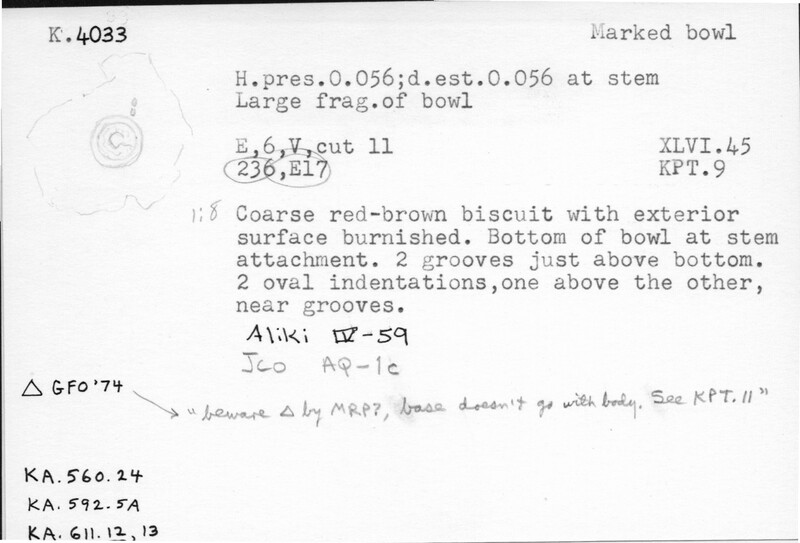 K.4033 Marked bowl
H.pres.0.056;d.est.0.056 at stem
Large frag.of bowl
E,6,V,cut 11 XLVI.45
236,E17 KPT.9
1:8 Coarse red-brown biscuit with exterior
surface burnished. Bottom of bowl at stem
attachment. 2 grooves just above bottom.
2 oval indentations,one above the other,
near grooves.
Aliki IV-59
Jco AQ-1c
△ GFO '74
"beware △ by MRP?, base doesn't go with body. See KPT.11"
KA.560.24
KA.592.5A
KA.611.12,13